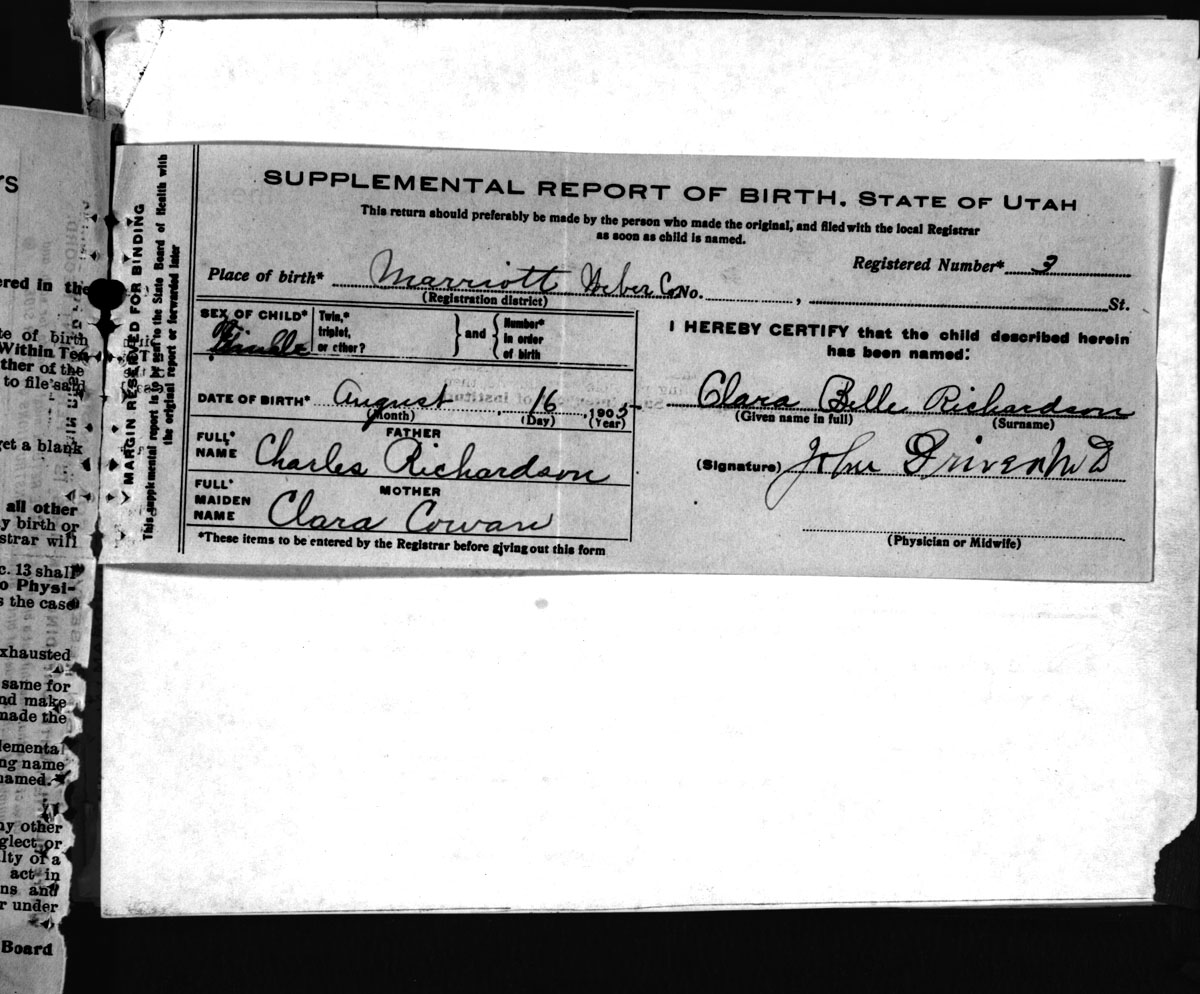 rs
ered in the
te of birth
Within Ten
ther of the
to file said
get a blank
all other
y birth or
strar will
c. 13 shall
o Physi-
s the case
xhausted
same for
nd make
made the
lemental
ng name
named.
ny other
glect or
lty of a
act in
ns and
r under
Board
MARGIN RESERVED FOR BINDING
This supplemental report is to be sent to the State Board of Health with
the original report or forwarded later
SUPPLEMENTAL REPORT OF BIRTH. STATE OF UTAH
This return should preferably be made by the person who made the original, and filed with the local Registrar
as soon as child is named.
Registered Number* 3
Place of birth* Marriott Weber Co No. , St.
(Registration district)
SEX OF CHILD* Twin,* triplet, or other? and Number* in order of birth
DATE OF BIRTH* August 16, 1905
(Month) (Day) (Year)
FATHER
FULL* NAME Charles Richardson
MOTHER
FULL* MAIDEN NAME Clara Cowan
*These items to be entered by the Registrar before giving out this form
I HEREBY CERTIFY that the child described herein
has been named:
Clara Belle Richardson
(Given name in full) (Surname)
(Signature) John Driver M D
(Physician or Midwife)